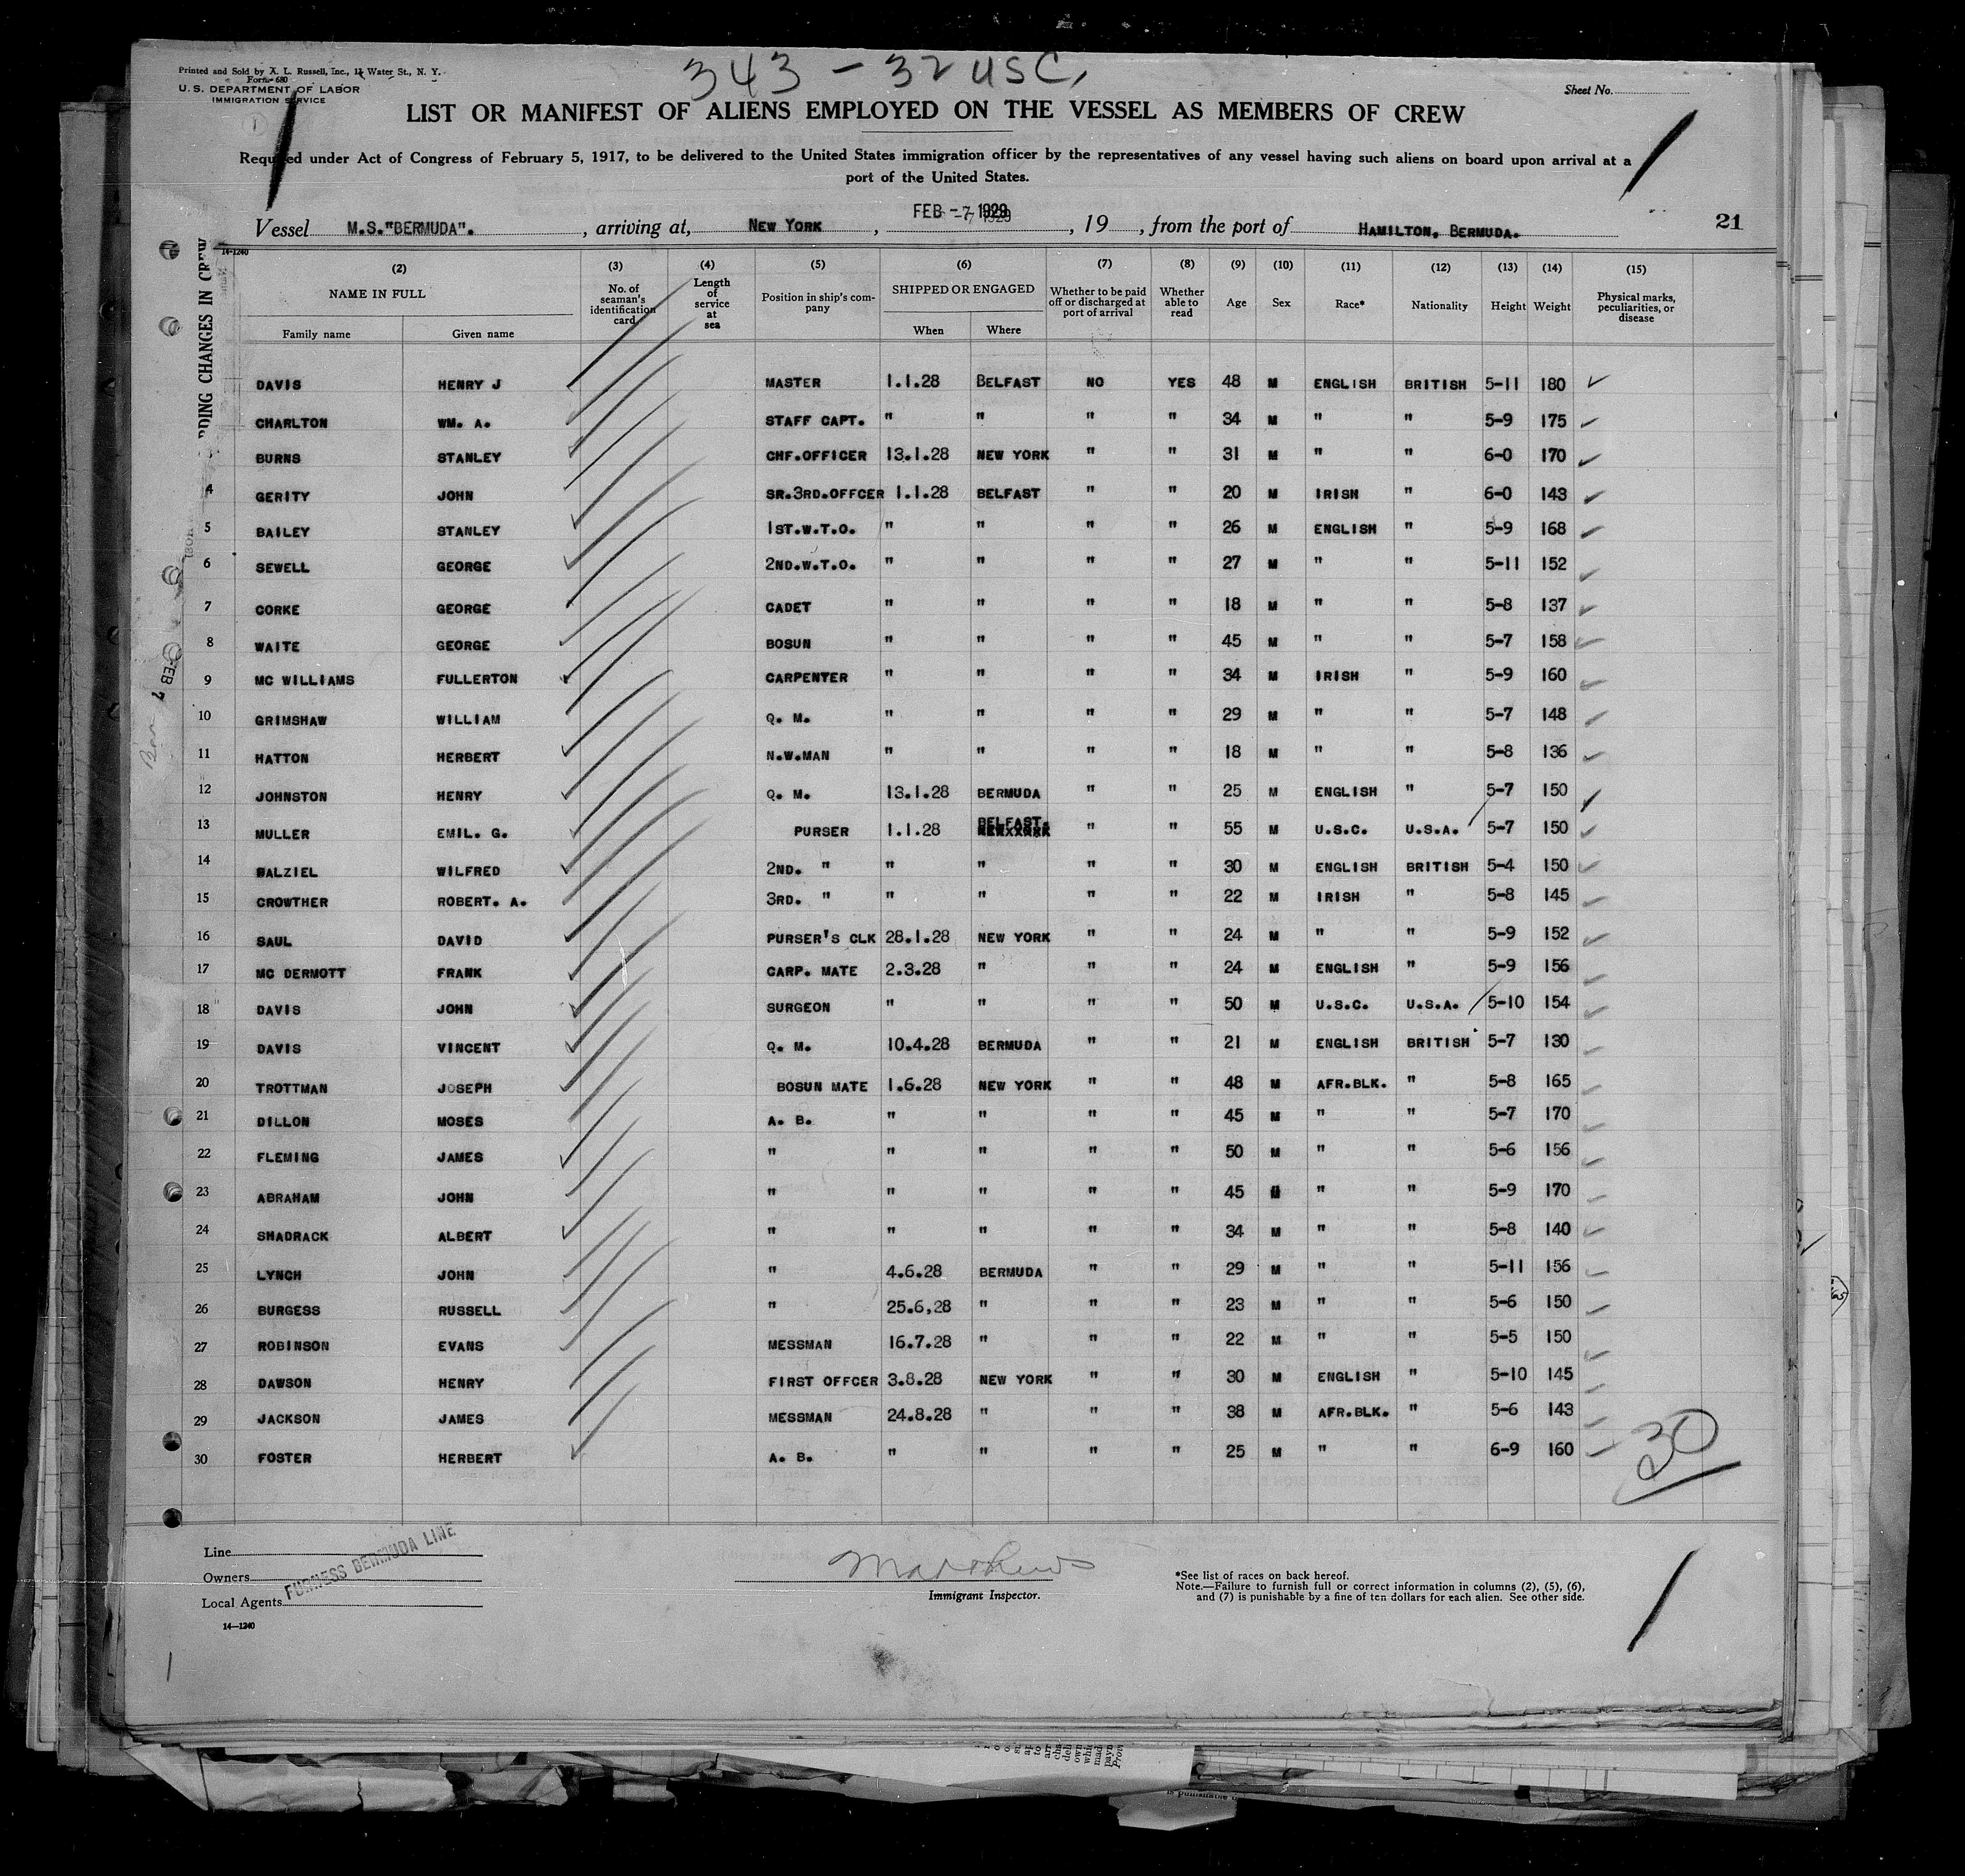 343 - 32 USC,
Printed and Sold by A. L. Russell, Inc., Water St., N. Y.
Form 680
U.S. DEPARTMENT OF LABOR
IMMIGRATION SERVICE
Sheet No.
LIST OR MANIFEST OF ALIENS EMPLOYED ON THE VESSEL AS MEMBERS OF CREW
Required under Act of Congress of February 5, 1917, to be delivered to the United States immigration officer by the representatives of any vessel having such aliens on board upon arrival at a
port of the United States.
FEB -7 1929
Vessel M.S."BERMUDA". , arriving at, NEW YORK , , 19 , from the port of HAMILTON, BERMUDA. 21
14-1240
(2) (3) (4) (5) (6) (7) (8) (9) (10) (11) (12) (13) (14) (15)
NAME IN FULL No. of seaman's identification card Length of service at sea Position in ship's company SHIPPED OR ENGAGED Whether to be paid off or discharged at port of arrival Whether able to read Age Sex Race* Nationality Height Weight Physical marks, peculiarities, or disease
Family name Given name When Where
DAVIS HENRY J MASTER 1.1.28 BELFAST NO YES 48 M ENGLISH BRITISH 5-11 180
CHARLTON WM. A. STAFF CAPT. " " " " 34 M " " 5-9 175
BURNS STANLEY CHF.OFFICER 13.1.28 NEW YORK " " 31 M " " 6-0 170
4 GERITY JOHN SR.3RD.OFFCER 1.1.28 BELFAST " " 20 M IRISH " 6-0 143
5 BAILEY STANLEY 1ST.W.T.O. " " " " 26 M ENGLISH " 5-9 168
6 SEWELL GEORGE 2ND.W.T.O. " " " " 27 M " " 5-11 152
7 CORKE GEORGE CADET " " " " 18 M " " 5-8 137
8 WAITE GEORGE BOSUN " " " " 45 M " " 5-7 158
9 MC WILLIAMS FULLERTON CARPENTER " " " " 34 M IRISH " 5-9 160
10 GRIMSHAW WILLIAM Q. M. " " " " 29 M " " 5-7 148
11 HATTON HERBERT N.W.MAN " " " " 18 M " " 5-8 136
12 JOHNSTON HENRY Q. M. 13.1.28 BERMUDA " " 25 M ENGLISH " 5-7 150
13 MULLER EMIL. G. PURSER 1.1.28 BELFAST. " " 55 M U.S.C. U.S.A. 5-7 150
14 DALZIEL WILFRED 2ND. " " " " " 30 M ENGLISH BRITISH 5-4 150
15 CROWTHER ROBERT. A. 3RD. " " " " " 22 M IRISH " 5-8 145
16 SAUL DAVID PURSER'S CLK 28.1.28 NEW YORK " " 24 M " " 5-9 152
17 MC DERMOTT FRANK CARP. MATE 2.3.28 " " " 24 M ENGLISH " 5-9 156
18 DAVIS JOHN SURGEON " " " " 50 M U.S.C. U.S.A. 5-10 154
19 DAVIS VINCENT Q. M. 10.4.28 BERMUDA " " 21 M ENGLISH BRITISH 5-7 130
20 TROTTMAN JOSEPH BOSUN MATE 1.6.28 NEW YORK " " 48 M AFR.BLK. " 5-8 165
21 DILLON MOSES A. B. " " " " 45 M " " 5-7 170
22 FLEMING JAMES " " " " " 50 M " " 5-6 156
23 ABRAHAM JOHN " " " " " 45 M " " 5-9 170
24 SHADRACK ALBERT " " " " " 34 M " " 5-8 140
25 LYNCH JOHN " 4.6.28 BERMUDA " " 29 M " " 5-11 156
26 BURGESS RUSSELL " 25.6,28 " " " 23 M " " 5-6 150
27 ROBINSON EVANS MESSMAN 16.7.28 " " " 22 M " " 5-5 150
28 DAWSON HENRY FIRST OFFCER 3.8.28 NEW YORK " " 30 M ENGLISH " 5-10 145
29 JACKSON JAMES MESSMAN 24.8.28 " " " 38 M AFR.BLK. " 5-6 143
30 FOSTER HERBERT A. B. " " " " 25 M " " 6-9 160
30
Line
Owners
Local Agents
FURNESS BERMUDA LINE
14-1240
Matthews
Immigrant Inspector.
*See list of races on back hereof.
Note.—Failure to furnish full or correct information in columns (2), (5), (6),
and (7) is punishable by a fine of ten dollars for each alien. See other side.
CHANGES IN CREW
FEB 7